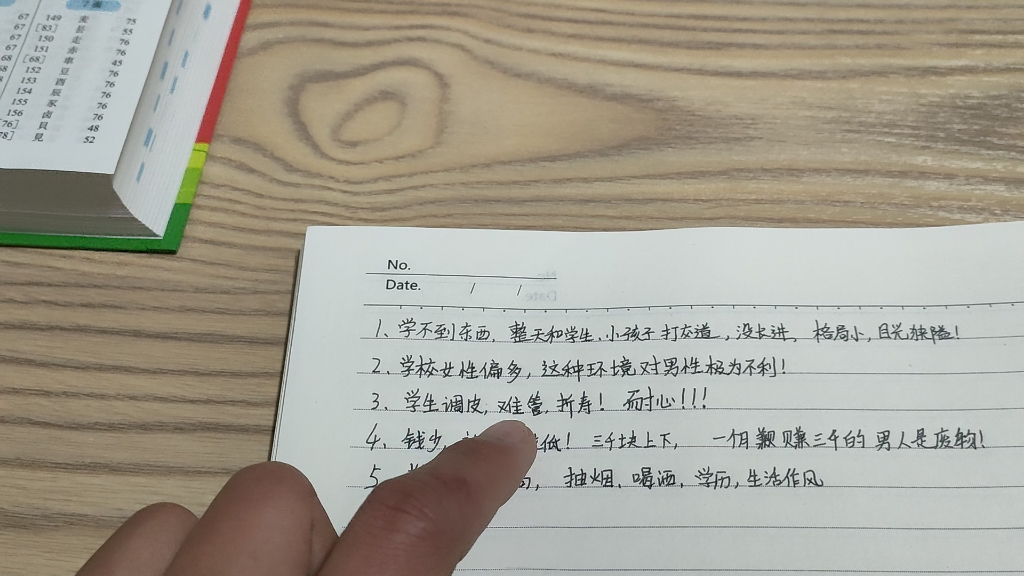 7画
67 149 麦 75
67 [83] 县 55
67 150 走 76
67 151 赤 76
68 [68] 車 45
152 豆 76
153 酉 76
154 辰 76
155 豕 76
156 卤 76
[76] 貝 48
[78] 見 52
No.
Date. / /
1、学不到东西, 整天和学生、小孩子打交道, 没长进, 格局小, 目光狭隘!
2、学校女性偏多, 这种环境对男性极为不利!
3、学生调皮, 难管, 折寿! 耐心!!!
4、钱少, 低! 三千块上下, 一个月赚三千的男人是废物!
5、 抽烟、喝酒, 学历, 生活作风